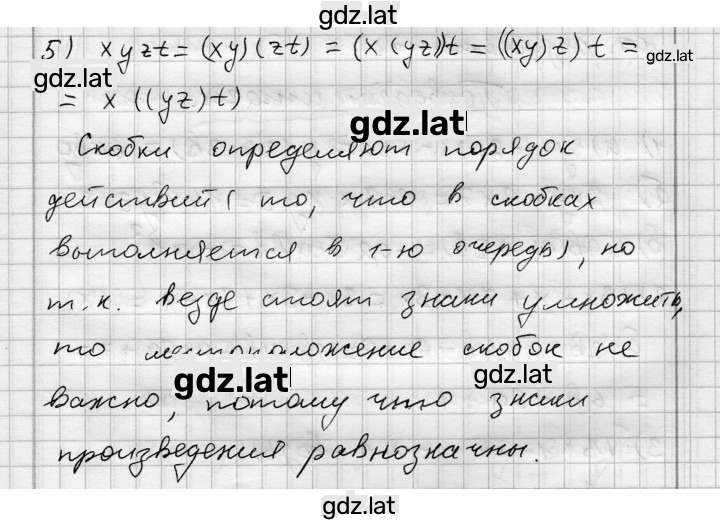 gdz.lat
5) xyzt = (xy)(zt) = (x(yz))t = ((xy)z)t =
gdz.lat
gdz.lat
= x((yz)t)
gdz.lat
Скобки определяют порядок
действий (то, что в скобках
выполняется в 1-ю очередь), но
т.к. везде стоят знаки умножить,
то местоположение скобок не
gdz.lat
gdz.lat
важно, потому что знаки
произведения равнозначны.
gdz.lat